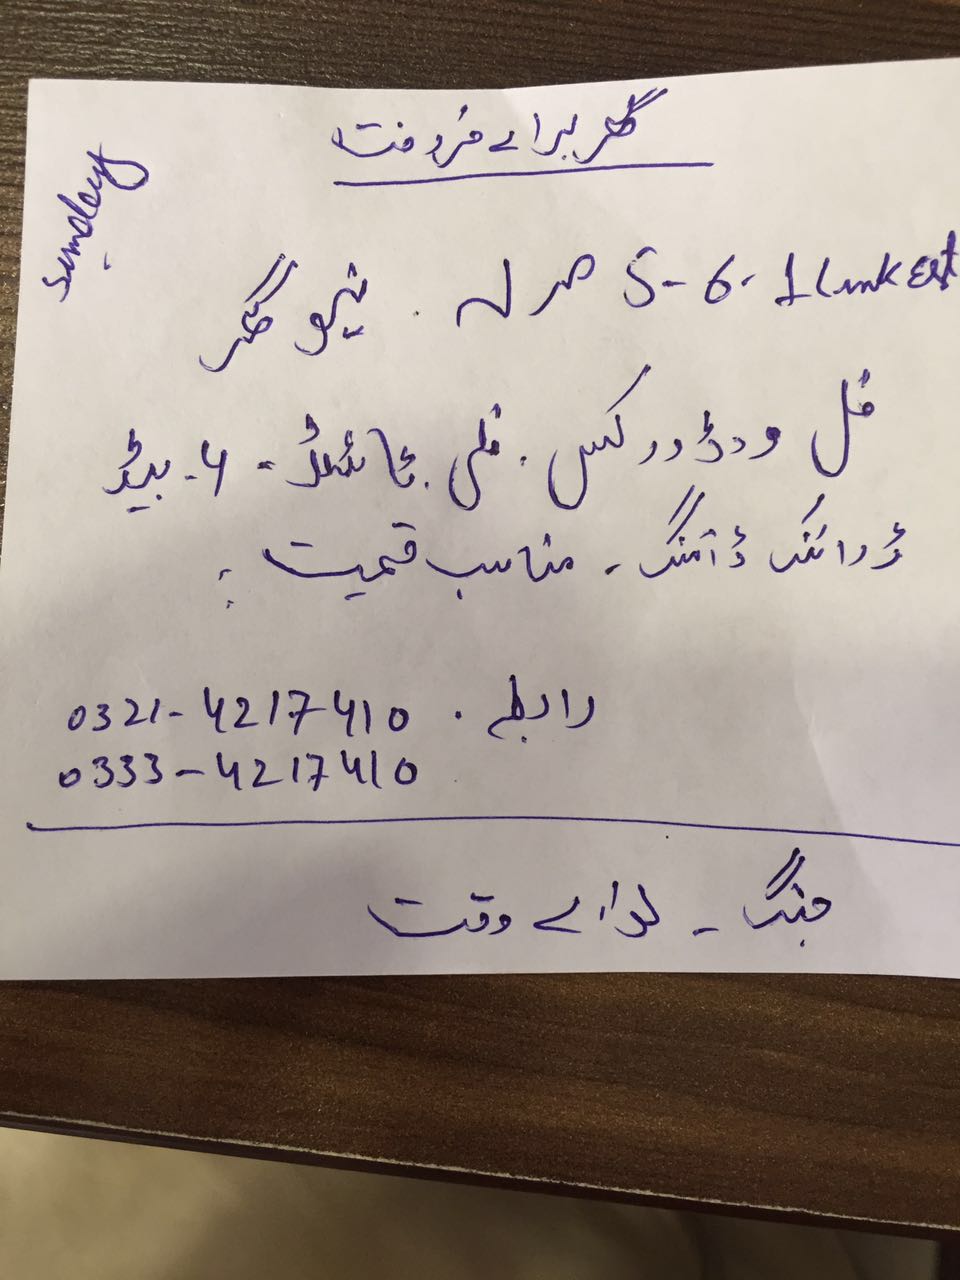 گھر برائے فروخت
Sunday
5-6 مرلہ . نیو گھر
فل ووڈ ورکس . فلی ٹائلڈ - 4 - بیڈ
ڈرائنگ ڈائننگ - مناسب قیمت .
رابطے . 0321-4217410
0333-4217410
جنگ - نوائے وقت